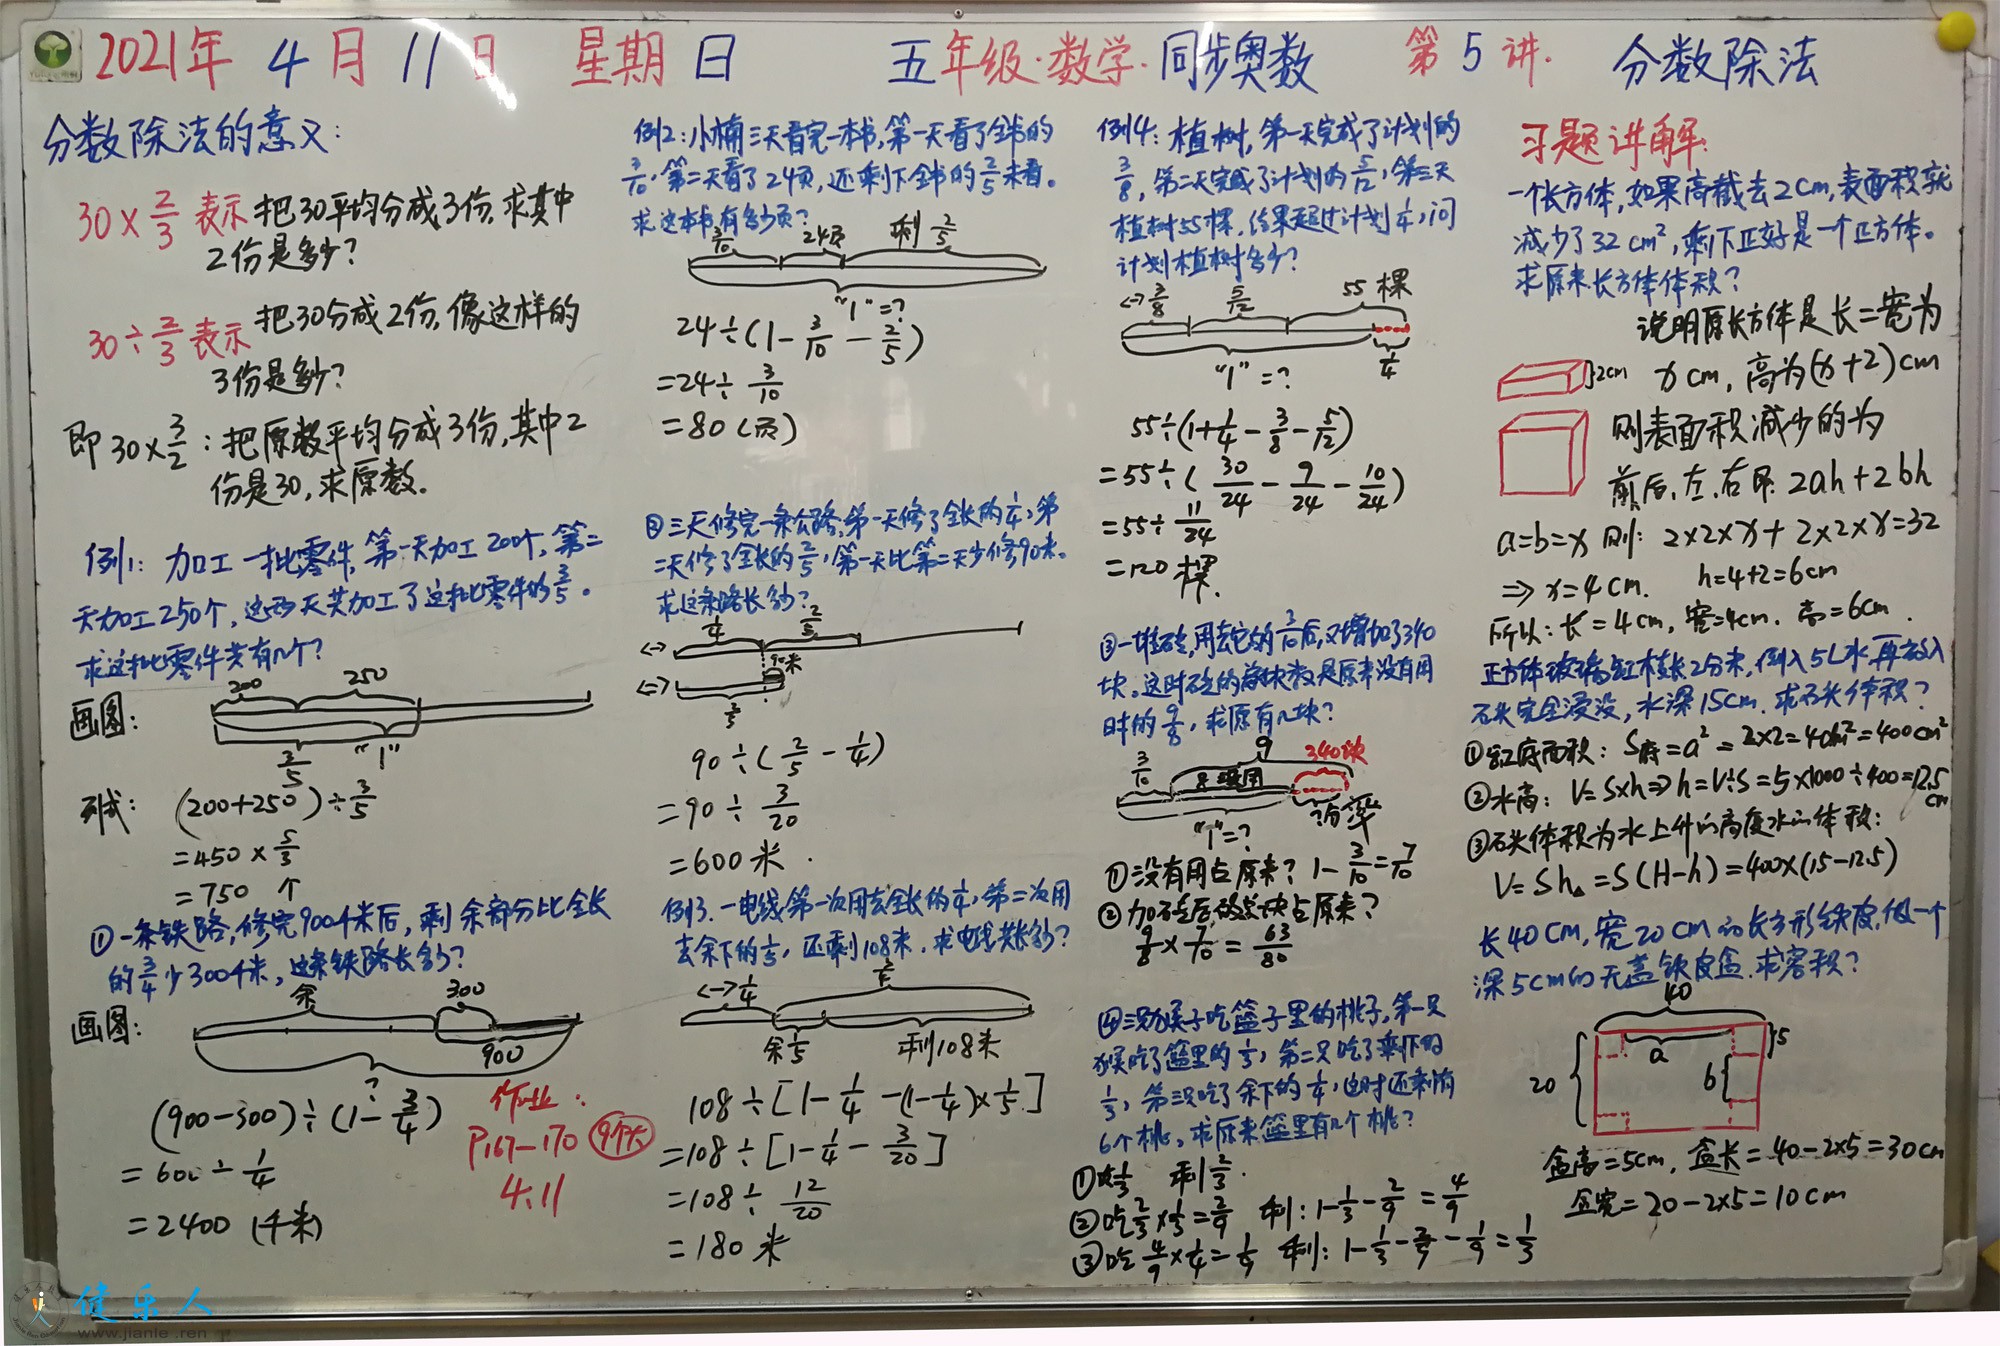 2021年 4月11日 星期日 五年级·数学·同步奥数 第5讲. 分数除法
分数除法的意义:
30×2/3 表示 把30平均分成3份,求其中
2份是多少?
30÷2/3 表示 把30分成2份,像这样的
3份是多少?
即30×3/2:把原数平均分成3份,其中2
份是30,求原数。
例1: 加工一批零件,第一天加工200个,第二
天加工250个,这两天共加工了这批零件的3/5。
求这批零件共有几个?
画图:
200 250
3/5 "1"
列式: (200+250)÷3/5
=450×5/3
=750 个
①一条铁路,修完900千米后,剩余部分比全长
的3/4少300千米,这条铁路长多少?
画图:
余 300
900
?
(900-300)÷(1-3/4)
=600÷1/4
=2400 (千米)
作业:
P167-170
4.11
例2:小楠三天看完一本书,第一天看了全书的
3/10,第二天看了24页,还剩下全书的2/5未看。
求这本书有多少页?
3/10 24页 剩2/5
"1"=?
24÷(1-3/10-2/5)
=24÷3/10
=80(页)
②三天修完一条公路,第一天修了全长的1/4,第
二天修了全长的2/5,第一天比第二天少修90米。
求这条路长多少?
1/4 2/5
90米
2/5
90÷(2/5-1/4)
=90÷3/20
=600米.
例3.一电线,第一次用去全长的1/4,第二次用
去余下的1/5,还剩108米.求电线共长多少?
1/4
余1/5 剩108米
108÷[1-1/4-(1-1/4)×1/5]
=108÷[1-1/4-3/20]
=108÷12/20
=180米
例4: 植树,第一天完成了计划的
3/8,第二天完成了计划的5/12,第三天
植树55棵,结果超过计划1/4,问
计划植树多少?
3/8 5/12 55棵
"1"=? 1/4
55÷(1+1/4-3/8-5/12)
=55÷(30/24-9/24-10/24)
=55÷11/24
=120棵.
③一堆砖,用去它的3/10后,又增加了340
块。这时砖的总块数是原来没有用
时的9/8,求原有几块?
3/10 9 340块
8 没用
"1"=? ?分率
①没有用占原来? 1-3/10=7/10
②加砖后的总块占原来?
9/8×7/10=63/80
④三只猴子吃篮子里的桃子,第一只
猴吃了篮里的1/3,第二只吃了剩下的
1/3,第三只吃了余下的1/4,这时还剩有
6个桃,求原来篮里有几个桃?
①吃1/3 剩2/3.
②吃2/3×1/3=2/9 剩:1-1/3-2/9=4/9
③吃4/9×1/4=1/9 剩:1-1/3-2/9-1/9=1/3
习题讲解:
一个长方体,如果高截去2cm,表面积就
减少了32cm²,剩下正好是一个正方体。
求原来长方体体积?
说明原长方体是长=宽为
2cm x cm,高为(x+2)cm
则表面积减少的为
前后、左、右即2ah+2bh
a=b=x 则: 2×2×x+2×2×x=32
⇒x=4cm. h=4+2=6cm
所以:长=4cm,宽=4cm.高=6cm.
正方体玻璃缸棱长2分米,倒入5L水,再放入
石头完全浸没,水深15cm.求石头体积?
①缸底面积:S底=a²=2×2=4dm²=400cm²
②水高: V=S×h⇒h=V÷S=5×1000÷400=12.5cm
③石头体积为水上升的高度水的体积:
V=Sh△=S(H-h)=400×(15-12.5)
长40cm,宽20cm的长方形铁皮,做一个
深5cm的无盖铁皮盒.求容积?
40
5
20 a b
盒高=5cm,盒长=40-2×5=30cm
盒宽=20-2×5=10cm
健乐人
www.jianle.ren